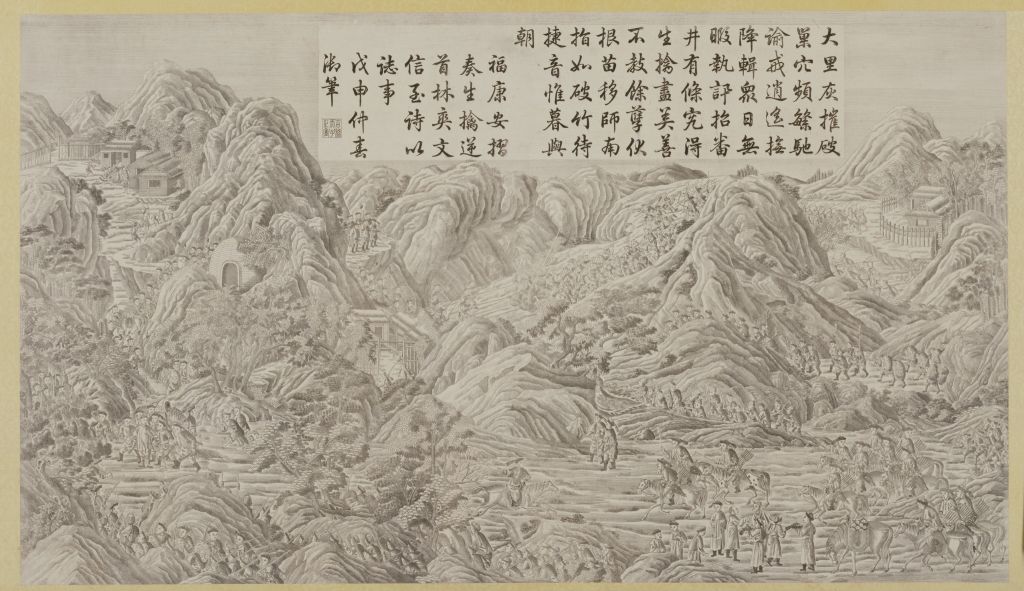 大里灰摧破
巢穴頻繁馳
諭戒逍遙撫
降輯衆日無
暇執訊招番
井有條究得
生擒盡美善
不教餘孽伏
根苗移師南
指如破竹待
捷音惟暮與
朝
福康安摺
奏生擒逆
首林爽文
信至詩以
誌事
戊申仲春
御筆